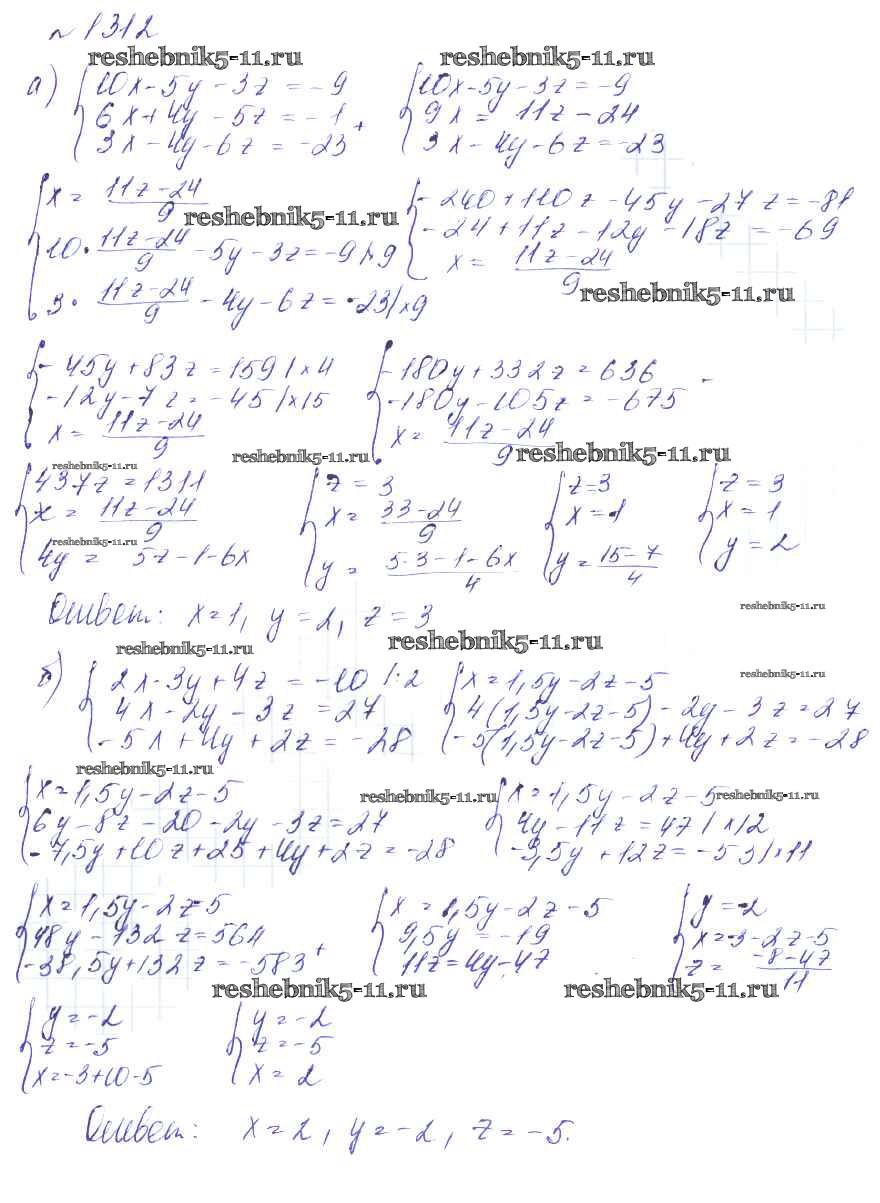 № 1312
reshebnik5-11.ru reshebnik5-11.ru
а) { 10x - 5y - 3z = -9
6x + 4y - 5z = -1 +
3x - 4y - 6z = -23
{ 10x - 5y - 3z = -9
9x = 11z - 24
3x - 4y - 6z = -23
{ x = (11z - 24)/9
10 · (11z - 24)/9 - 5y - 3z = -9 | × 9
3 · (11z - 24)/9 - 4y - 6z = -23 | × 9
reshebnik5-11.ru
{ - 240 + 110z - 45y - 27z = -81
- 24 + 11z - 12y - 18z = -69
x = (11z - 24)/9
reshebnik5-11.ru
{ - 45y + 83z = 159 | × 4
-12y - 7z = -45 | × 15
x = (11z - 24)/9
{ - 180y + 332z = 636 -
-180y - 105z = -675
x = (11z - 24)/9
reshebnik5-11.ru reshebnik5-11.ru reshebnik5-11.ru
{ 437z = 1311
x = (11z - 24)/9
4y = 5z - 1 - 6x
reshebnik5-11.ru
{ z = 3
x = (33 - 24)/9
y = (5·3 - 1 - 6x)/4
{ z = 3
x = 1
y = (15 - 7)/4
{ z = 3
x = 1
y = 2
Ответ: x = 1, y = 2, z = 3
reshebnik5-11.ru
reshebnik5-11.ru reshebnik5-11.ru
б) { 2x - 3y + 4z = -10 | : 2
4x - 2y - 3z = 27
-5x + 4y + 2z = -28
reshebnik5-11.ru
{ x = 1,5y - 2z - 5
4(1,5y - 2z - 5) - 2y - 3z = 27
-5(1,5y - 2z - 5) + 4y + 2z = -28
reshebnik5-11.ru
{ x = 1,5y - 2z - 5
6y - 8z - 20 - 2y - 3z = 27
- 7,5y + 10z + 25 + 4y + 2z = -28
reshebnik5-11.ru reshebnik5-11.ru
{ x = 1,5y - 2z - 5
4y - 11z = 47 | × 12
-3,5y + 12z = -53 | × 11
{ x = 1,5y - 2z - 5
48y - 132z = 564 +
-38,5y + 132z = -583
{ x = 1,5y - 2z - 5
9,5y = -19
11z = 4y - 47
{ y = -2
x = -3 - 2z - 5
z = (-8 - 47)/11
reshebnik5-11.ru reshebnik5-11.ru
{ y = -2
z = -5
x = -3 + 10 - 5
{ y = -2
z = -5
x = 2
Ответ: x = 2, y = -2, z = -5.